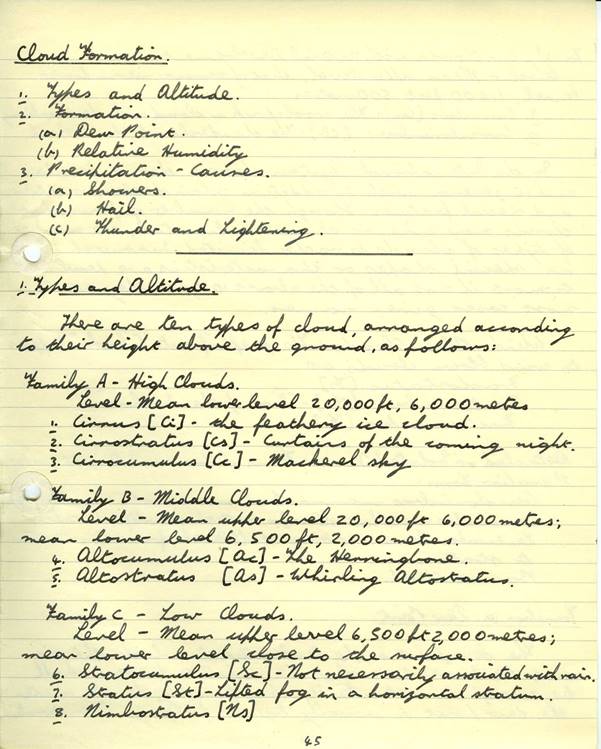 Cloud Formation.
1. Types and Altitude.
2. Formation.
(a) Dew Point.
(b) Relative Humidity
3. Precipitation - Causes.
(a) Showers.
(b) Hail.
(c) Thunder and Lightening.
1. Types and Altitude.
There are ten types of cloud, arranged according
to their height above the ground, as follows:
Family A - High Clouds.
Level - Mean lower level 20,000 ft, 6,000 metres
1. Cirrus [Ci] - the feathery ice cloud.
2. Cirrostratus [Cs] - Curtains of the coming night.
3. Cirrocumulus [Cc] - Mackerel sky
Family B - Middle Clouds.
Level - Mean upher level 20,000 ft 6,000 metres;
mean lower level 6,500 ft, 2,000 metres.
4. Altocumulus [Ac] - The Herringbone.
5. Altostratus [As] - Whirling Altostratus.
Family C - Low Clouds.
Level - Mean upher level 6,500 ft 2,000 metres;
mean lower level close to the surface.
6. Stratocumulus [Sc] - Not necessarily associated with rain.
7. Status [St] - Lifted fog in a horizontal stratum.
8. Nimbostratus [Ns]
45